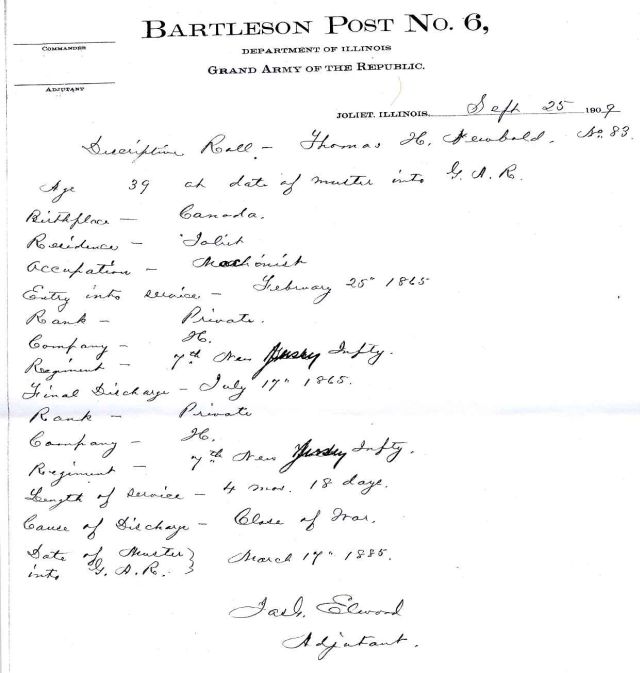 BARTLESON POST NO. 6,
COMMANDER
DEPARTMENT OF ILLINOIS
GRAND ARMY OF THE REPUBLIC.
ADJUTANT
JOLIET, ILLINOIS, Sept 25 1909
Discriptive Roll - Thomas H. Newbold. No. 83.
Age 39 at date of muster into G. A. R.
Birthplace - Canada.
Residence - Joliet
Occupation - Machinist
Entry into service - February 25" 1865
Rank - Private.
Company - H.
Regiment - 7th New Jersey Infty.
Final Discharge - July 17" 1865.
Rank - Private
Company - H.
Regiment - 7th New Jersey Infty.
Length of service - 4 mos. 18 days.
Cause of Discharge - Close of War.
Date of Muster } March 17" 1885.
into G. A. R. -
Elwood
Adjutant.